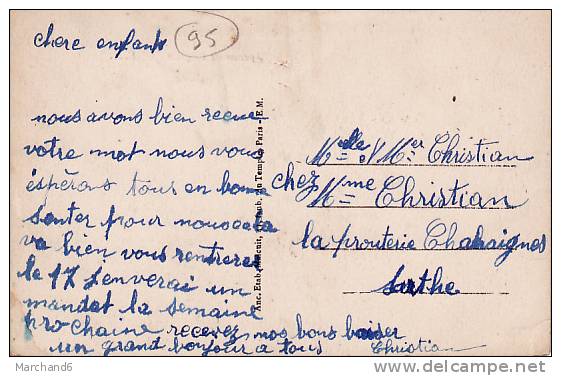 chere enfant
95
nous avons bien recue
votre mot nous vous
éspérons tous en bonne
santer pour nous cela
va bien vous rentrerez
le 17 J enverai un
mandat la semaine
prochaine recevez nos bons baiser
un grand bonjour a tous
Christian
Melle & Mer Christian
chez Mme Christian
la frouterie Chahaignes
Sarthe
du Temple, Paris - E.M.
Marchand6
http://www.delcampe.net